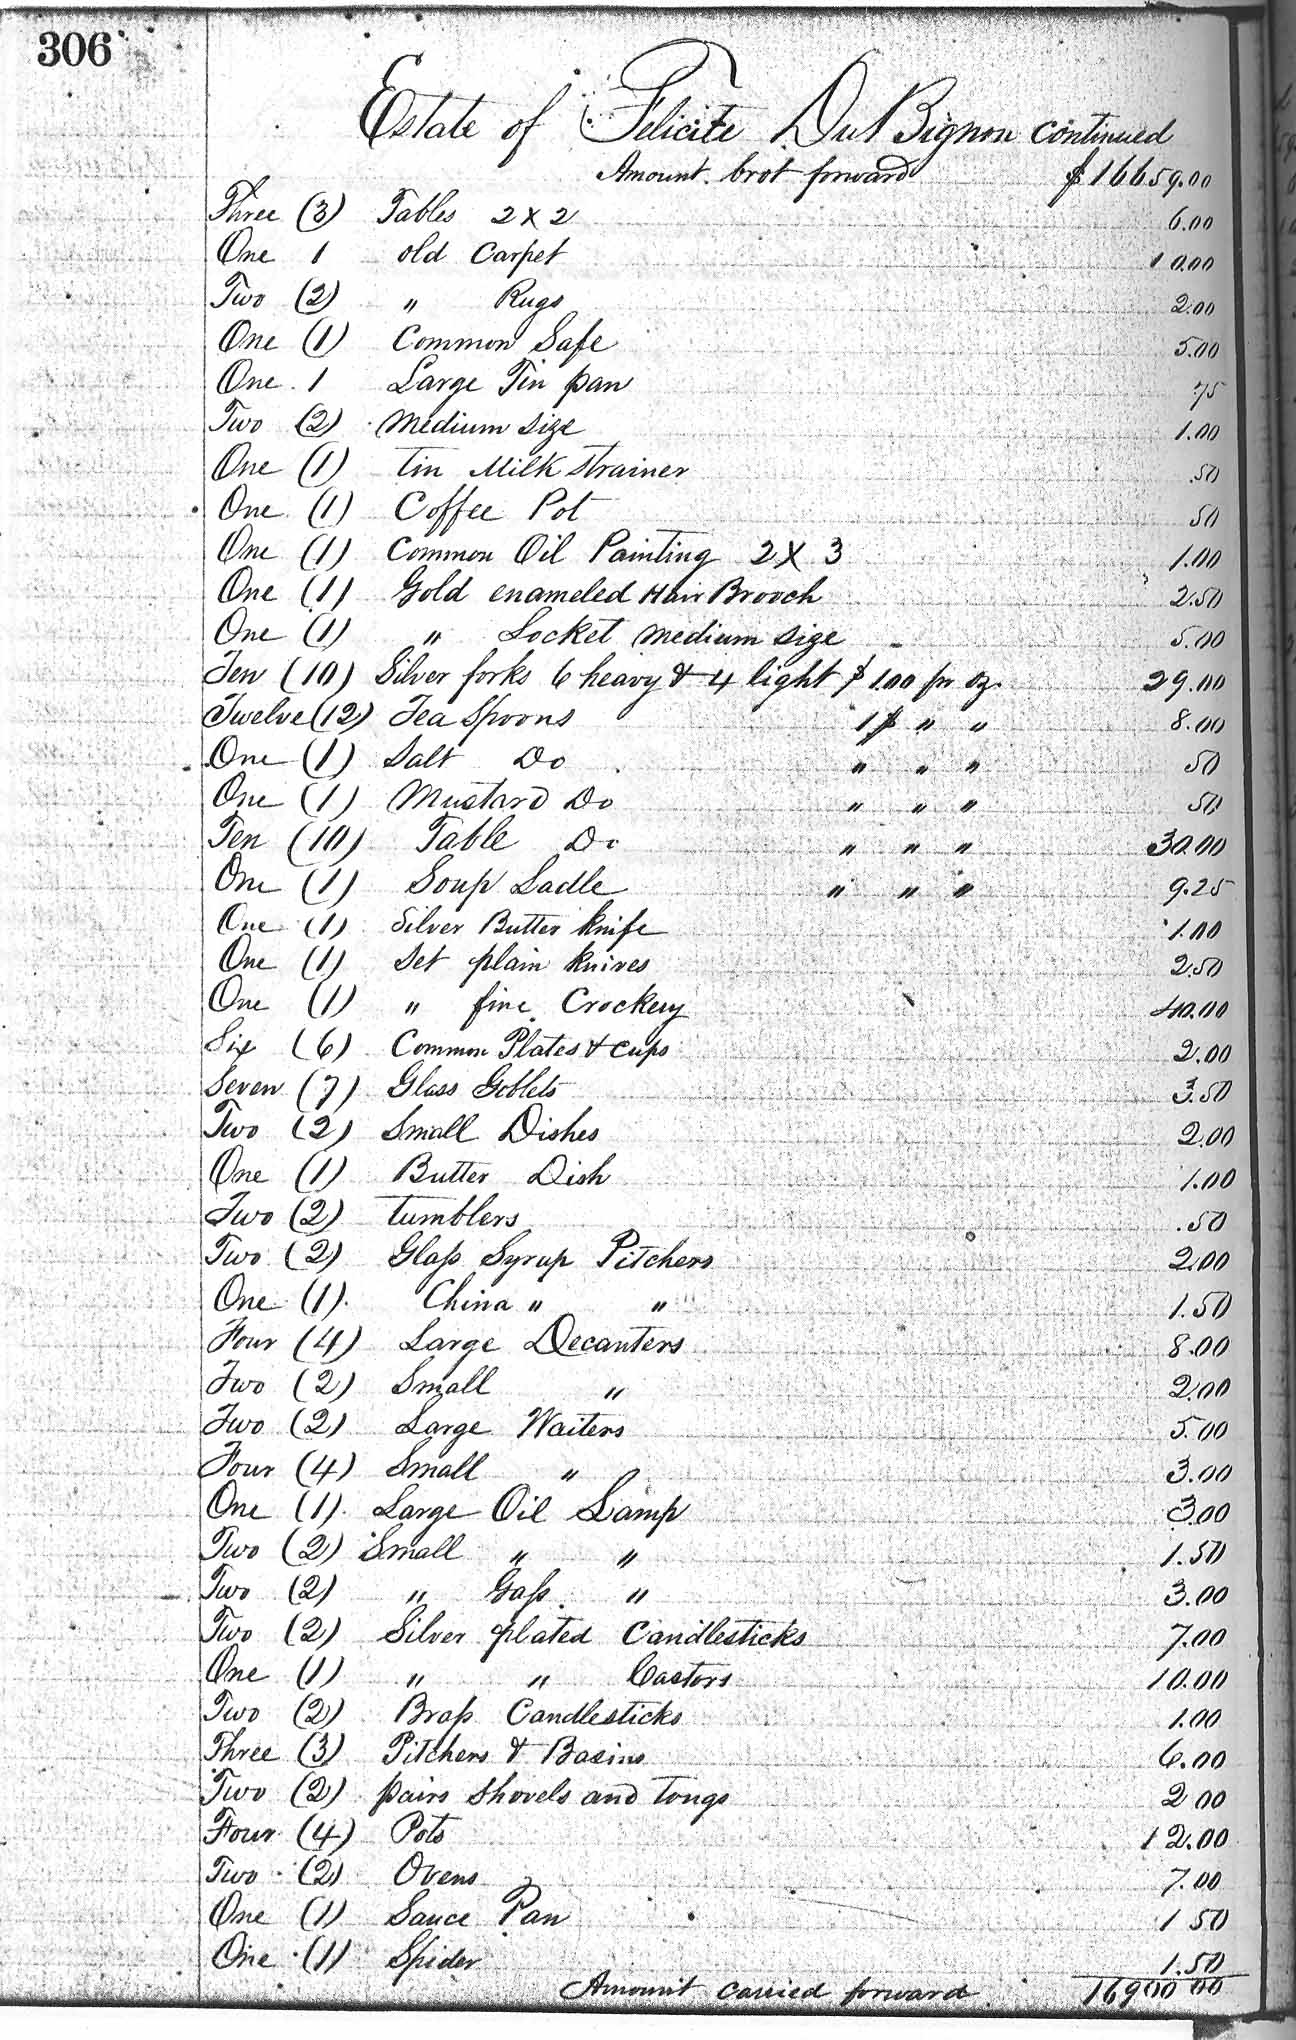 306
Estate of Felicite DuBignon continued
Amount brot forward $16659.00
Three (3) Tables 2 x 2 6.00
One 1 old Carpet 10.00
Two (2) " Rugs 2.00
One (1) Common Safe 5.00
One 1 Large Tin pan 75
Two (2) Medium size 1.00
One (1) tin Milk strainer .50
One (1) Coffee Pot 50
One (1) Common Oil Painting 2 X 3 1.00
One (1) Gold enameled Hair Brooch 2.50
One (1) " Locket medium size 5.00
Ten (10) Silver forks 6 heavy & 4 light $1.00 pr oz. 29.00
Twelve (12) Tea Spoons 1$ " " 8.00
One (1) Salt Do " " " 50
One (1) Mustard Do " " " 50
Ten (10) Table Do " " " 30.00
One (1) Soup Ladle " " " 9.25
One (1) Silver Butter knife 1.00
One (1) Set plain knives 2.50
One (1) " fine Crockery 40.00
Six (6) Common Plates & cups 2.00
Seven (7) Glass Goblets 3.50
Two (2) Small Dishes 2.00
One (1) Butter Dish 1.00
Two (2) tumblers .50
Two (2) Glass Syrup Pitchers 2.00
One (1) China " " 1.50
Four (4) Large Decanters 8.00
Two (2) Small " 2.00
Two (2) Large Waiters 5.00
Four (4) Small " 3.00
One (1) Large Oil Lamp 3.00
Two (2) Small " " 1.50
Two (2) " Gass " 3.00
Two (2) Silver plated Candlesticks 7.00
One (1) " " Castors 10.00
Two (2) Brass Candlesticks 1.00
Three (3) Pitchers & Basins 6.00
Two (2) pairs shovels and tongs 2 00
Four (4) Pots 12.00
Two (2) Ovens 7.00
One (1) Sauce Pan 1 50
One (1) Spider 1.50
Amount carried forward 16900 00